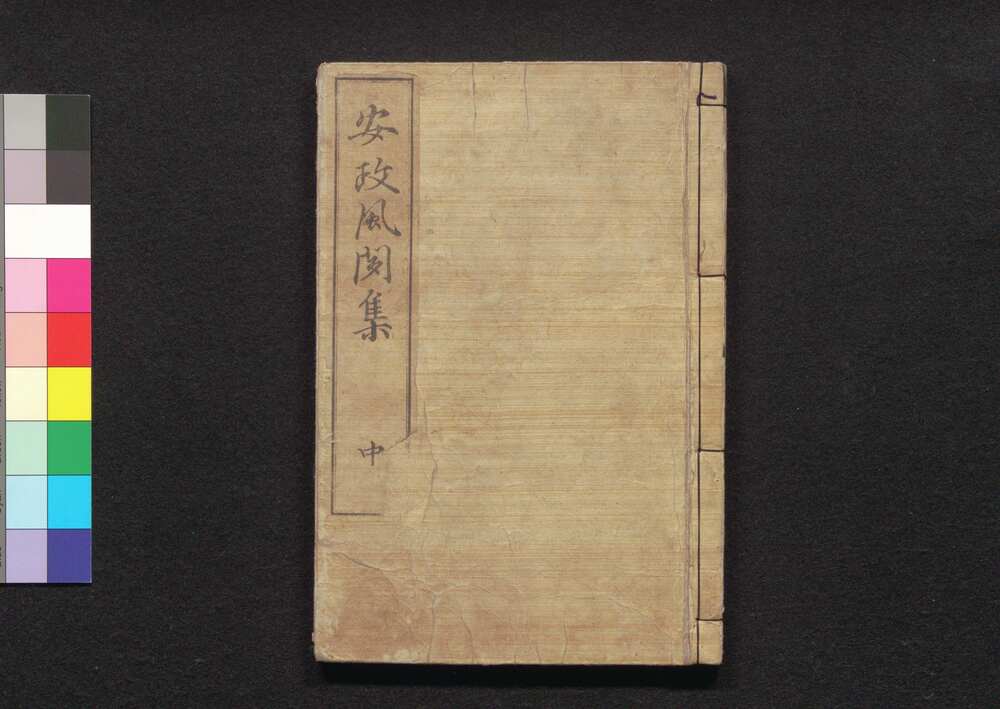 安政風聞集
中